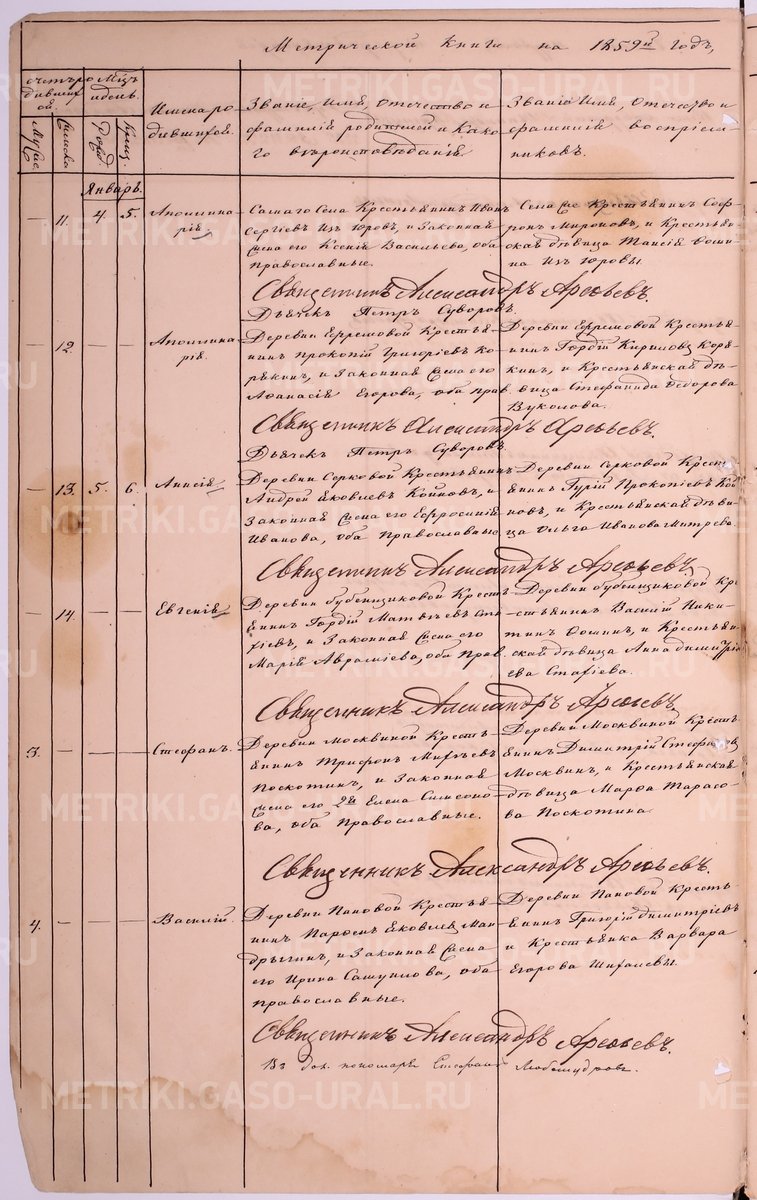 Метрической Книги на 1859й годъ,
счетъ родившихся.
Мужс.
Женска
Мѣсяцъ и день.
Рожд.
Крещ.
Имена родившихся.
Званіе, имя, отечество и
фамилія родителей и како
го вѣроисповѣданія.
Званіе Имя, отечество и
фамилія воспріем-
никовъ.
Январь.
— 11. 4. 5.
Аполлина-
рія.
Самаго Села Крестьянинъ Иванъ
Сергіевъ Изъюровъ, и Законная
жена его Ксенія Васильева, оба
православные.
Села же Крестьянинъ Соф-
ронъ Мироновъ, и Крестьян-
ская дѣвица Таисія Фоми-
на Изъюровы.
Священникъ Александръ Арефьевъ.
Дьячекъ Петръ Суворовъ.
— 12. — —
Аполлина-
рія.
Деревни Ефремовой Крестья-
нинъ Прокопій Григоріевъ Ко-
рякинъ, и Законная жена его
Афанасія Егорова, оба прав.
Деревни Ефремовой Крестья-
нинъ Гордій Кириловъ Коря-
кинъ, и Крестьянская дѣ-
вица Стефанида Ѳедорова
Вуколова.
Священникъ Александръ Арефьевъ.
Дьячекъ Петръ Суворовъ.
— 13. 5. 6.
Анисія
Деревни Серковой Крестьянинъ
Андрей Яковлевъ Коиновъ, и
Законная жена его Ефросинія
Иванова, оба Православные
Деревни Серковой Кресть
янинъ Гурій Прокопіевъ Кои
новъ, и Крестьянская дѣви-
ца Ольга Иванова Митрева.
Священникъ Александръ Арефьевъ.
— 14. — —
Евгенія
Деревни Бубенщиковой Кресть
янинъ Гордій Матвѣевъ Ста-
хіевъ, и Законная жена его
Марія Авраміева, оба прав.
Деревни Бубенщиковой Кре
стьянинъ Василій Ники-
тинъ Фоминъ, и Крестьян-
ской дѣвица Анна Димитрі
ева Стахіева.
Священникъ Александръ Арефьевъ.
3. — — —
Стефанъ.
Деревни Москвиной Кресть
янинъ Трифонъ Михѣевъ
Поскотинъ, и Законная
жена его 2я Елена Симеоно-
ва, оба православные.
Деревни Москвиной Кресть
янинъ Димитрій Стефановъ
Москвинъ, и Крестьянская
дѣвица Марфа Тарасо-
ва Поскотина
Священникъ Александръ Арефьевъ.
4. — — —
Василій.
Деревни Пановой Крестья
нинъ Парфенъ Яковлевъ Ман
дрыгинъ, и Законная жена
его Ирина Самуилова, оба
православные.
Деревни Пановой Кресть
янинъ Григорій Димитріевъ
и Крестьянка Варвара
Егорова Шихалевы.
Священникъ Александръ Арефьевъ.
Въ дол. пономаря Стефанъ Любомудровъ.
METRIKI.GASO-URAL.RU